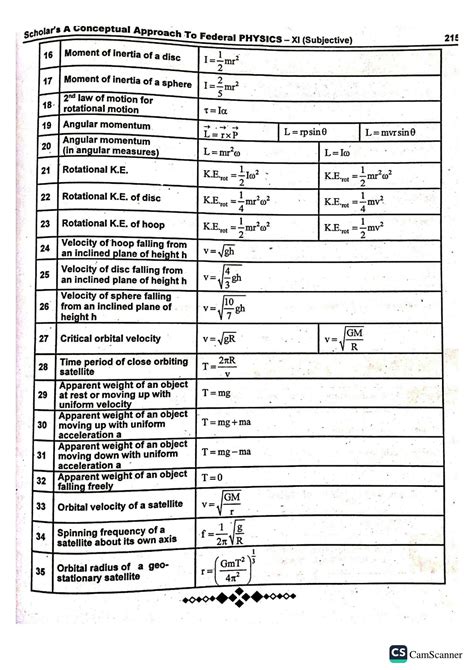 Scholar's A Conceptual Approach To Federal PHYSICS – XI (Subjective) 215
16 Moment of inertia of a disc I = 1/2 mr²
17 Moment of inertia of a sphere I = 2/5 mr²
18 2nd law of motion for
rotational motion τ = Iα
19 Angular momentum L = r × P L = rpsinθ L = mvr sinθ
20 Angular momentum
(in angular measures) L = mr²ω L = Iω
21 Rotational K.E. K.E_rot = 1/2 Iω² K.E_rot = 1/2 mr²ω²
22 Rotational K.E. of disc K.E_rot = 1/4 mr²ω² K.E_rot = 1/4 mv²
23 Rotational K.E. of hoop K.E_rot = 1/2 mr²ω² K.E_rot = 1/2 mv²
24 Velocity of hoop falling from
an inclined plane of height h v = √gh
25 Velocity of disc falling from
an inclined plane of height h v = √(4/3 gh)
26 Velocity of sphere falling
from an inclined plane of
height h v = √(10/7 gh)
27 Critical orbital velocity v = √gR v = √(GM/R)
28 Time period of close orbiting
satellite T = 2πR/v
29 Apparent weight of an object
at rest or moving up with
uniform velocity T = mg
30 Apparent weight of an object
moving up with uniform
acceleration a T = mg + ma
31 Apparent weight of an object
moving down with uniform
acceleration a T = mg – ma
32 Apparent weight of an object
falling freely T = 0
33 Orbital velocity of a satellite v = √(GM/r)
34 Spinning frequency of a
satellite about its own axis f = 1/2π √(g/R)
35 Orbital radius of a geo-
stationary satellite r = (GmT²/4π²)^1/3
CS CamScanner